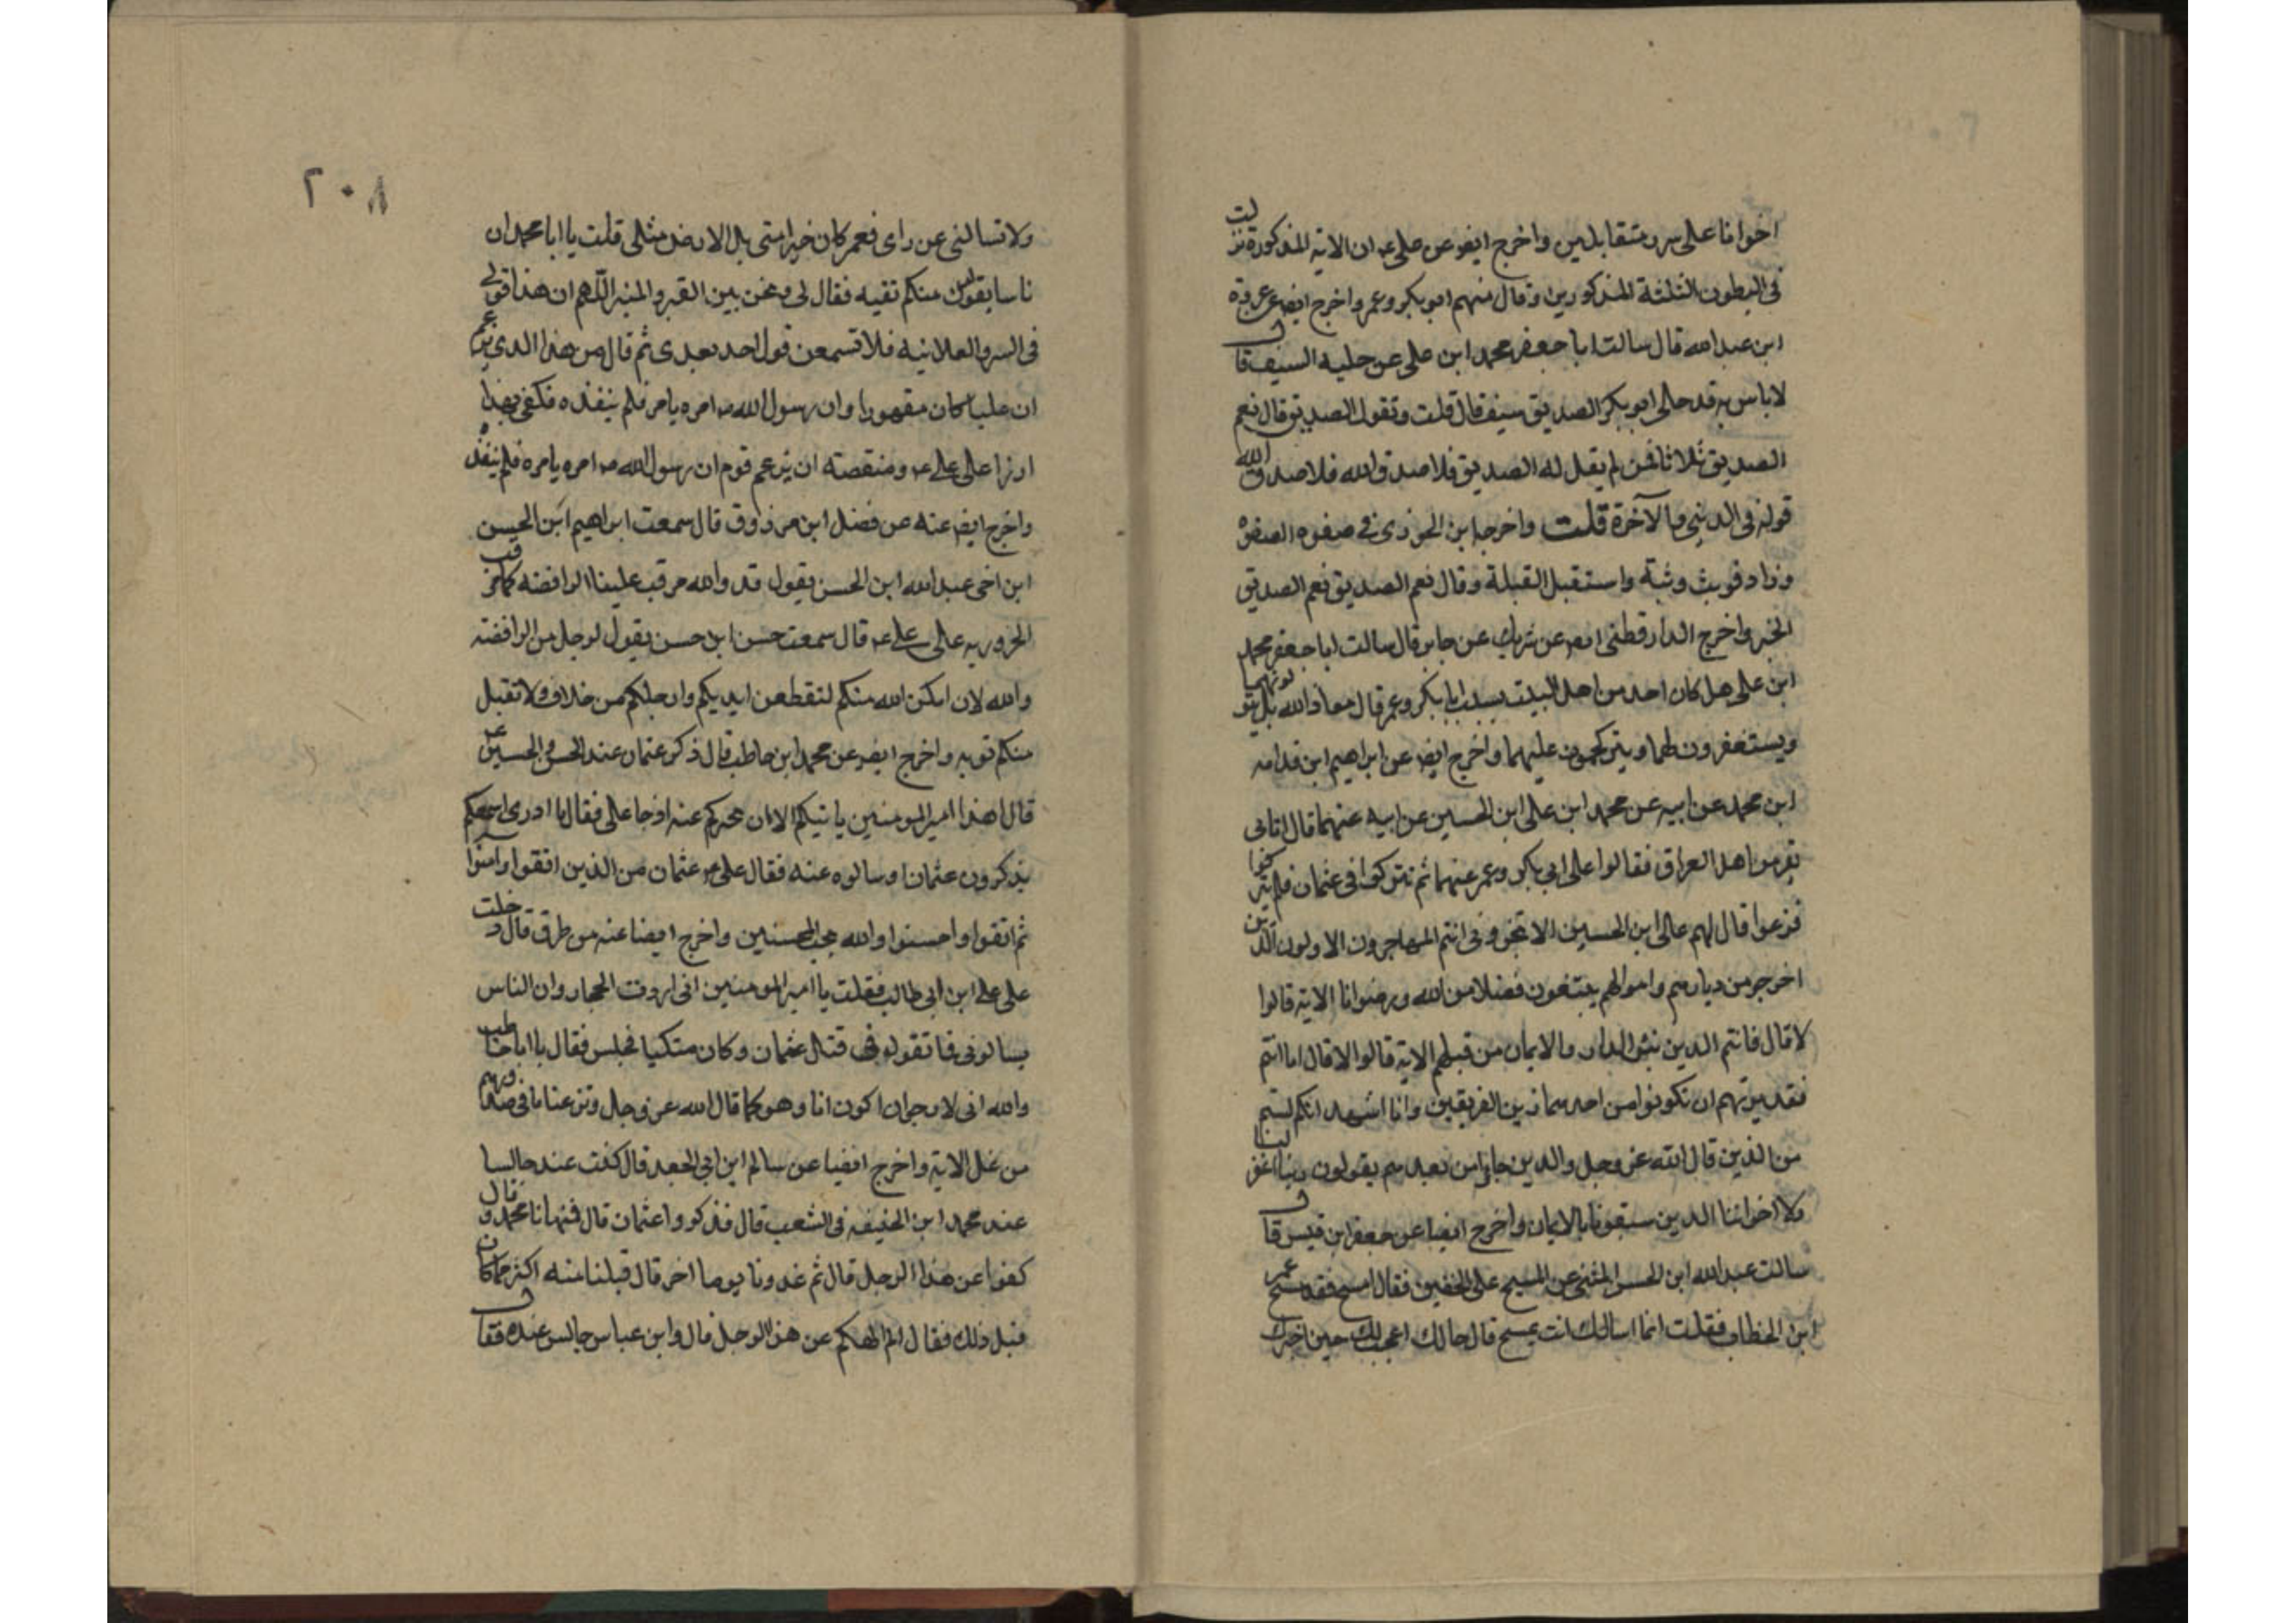 اخوانا على سرر متقابلين واخرج ايضو عن على عه ان الاية المذكورة نزلت
فى البطون الثلثة المذكورين وقال منهم ابو بكر وعمر واخرج ايضا عن عروة
ابن عبدالله قال سالت ابا جعفر محمد ابن على عن حلية السيف قال
لاباس به قد حلى ابو بكر الصديق سيفه قال قلت وتقول الصديق قال نعم
الصديق ثلاثا فمن لم يقل له الصديق فلا صدق والله فلا صدق الله
قوله فى الدنيى والآخرة قلت واخرجا ابن الجوزى فى صفوه الصفوه
وزاد فوثب وثبة واستقبل القبلة وقال نعم الصديق نعم الصديق
الخبر واخرج الدارقطنى ايضو عن شريك عن جابر قال سالت ابا جعفر محمد
ابن على هل كان احد من اهل البيت يسب ابا بكر وعمر قال معاذ الله بل يتولونهما
ويستغفرون لهما ويترحمون عليهما واخرج ايضو عن ابراهيم ابن قدامه
ابن محمد عن ابيه عن محمد ابن على ابن الحسين عن ابيه عنهما قال اتانى
نفر من اهل العراق فقالوا على ابى بكر وعمر عنهما ثم نتركوا فى عثمان فلم يتركوا
فزعوا قال لهم عالى ابن الحسين الا تخبرونى انتم المهاجرون الاولون الذين
اخرجو من ديارهم واموالهم يبتغون فضلا من الله ورضوانا الاية قالوا
لا قال فانتم الدين تبئو الدار والايمان من قبلهم الاية قالوا لا قال اما انتم
فقد برئتم ان تكونوا من احد هاذين الفريقين وانا اشهد انكم لستم
من الذين قال الله عز وجل والدين جاؤا من بعدهم يقولون ربنا اغفر لنا
ولا اخواننا الدين سبقونا بالايمان واخرج ايضا عن جعفر ابن قيس قال
سالت عبدالله ابن الحسن المثنى عن المسيح على الخفين فقال امسح فقد مسح عمر
ابن الخطاب فقلت انما اسالك انت تمسح قال حالك اعجب لك حين اخبرك
٢٠٨
ولا تسالنى عن راى فعمر كان خيرا منى بل الارض مثلى قلت يا ابا محمد ان
ناسا يقولون منكم تقيه فقال لى ونحن بين القبر والمنبر اللهم ان هذا قولى
فى السر والعلانيه فلا تسمعن قول احد بعدى ثم قال من هذا الدى يزعم
ان عليا كان مقهورا وان رسول الله صه امره بامر فلم ينفذه فكفى بهذا
ازرا على على عه ومنقصته ان يزعم قوم ان رسول الله صه امره بامره فلم ينفذه
واخرج ايضو عنه عن فضل ابن مرزوق قال سمعت ابراهيم ابن الحسن
ابن اخى عبدالله ابن الحسن يقول قد والله مرقت علينا الرافضه كما مرقت
الحروريه على على عه قال سمعت حسن ابن حسن يقول لرجل من الرافضه
والله لان امكن الله منكم لتقطعن ايديكم وارجلكم من خلاف ولا تقبل
منكم توبه واخرج ايضو عن محمد ابن حاطب قال ذكر عثمان عند الحسن والحسين عه
قال هذا امير المومنين ياتيكم الاان يخبركم عنه اذ جا على فقال ما ادرى اسمعكم
يذكرون عثمان او سالوه عنه فقال على عه عثمان من الذين اتقوا وامنوا
ثم اتقوا واحسنوا والله يحب المحسنين واخرج ايضا عنه من طرق قال دخلت
على على ابن ابى طالب فقلت يا امير المومنين انى اردت الحجاز وان الناس
يسالونى فما تقول فى قتل عثمان وكان متكيا فجلس فقال يا ابا حاطب
والله انى لارجو ان اكون انا وهو كما قال الله عز وجل ونزعنا ما فى صدورهم
من غل الاية واخرج ايضا عن سالم ابن ابى الجعد قال كنت عند جالسا
عند محمد ابن الحنيفه فى الشعب قال فذكروا عثمان قال فنهانا محمد وقال
كفوا عن هذا الرجل قال ثم غدونا يوما اخر قال فنلنا منه اكثر مما كان
قبل ذلك فقال الم انهكم عن هذا الرجل قال وابن عباس جالس عنده فقال